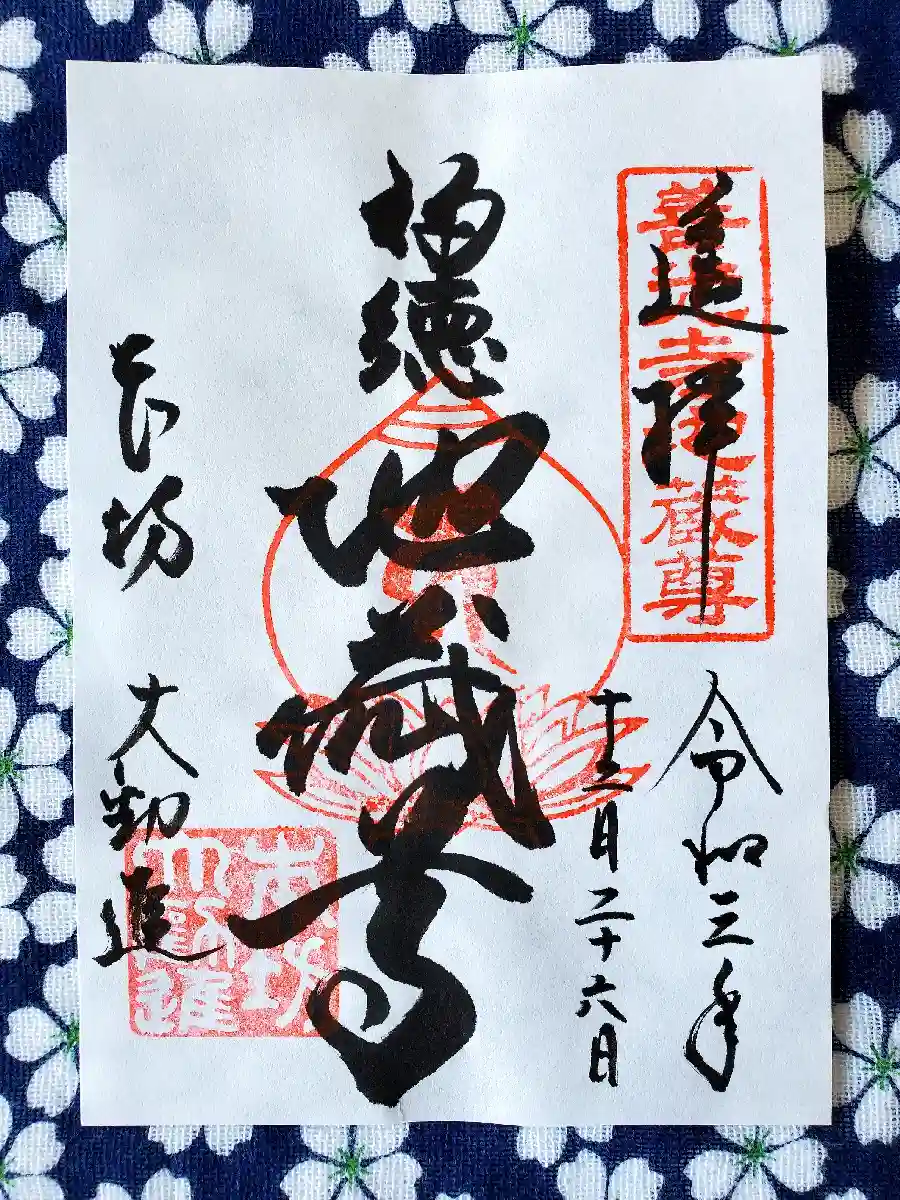 善光寺地蔵尊
拝
令和三年
十二月二十六日
徳地蔵尊
本坊
大勧進
本坊
大勧進